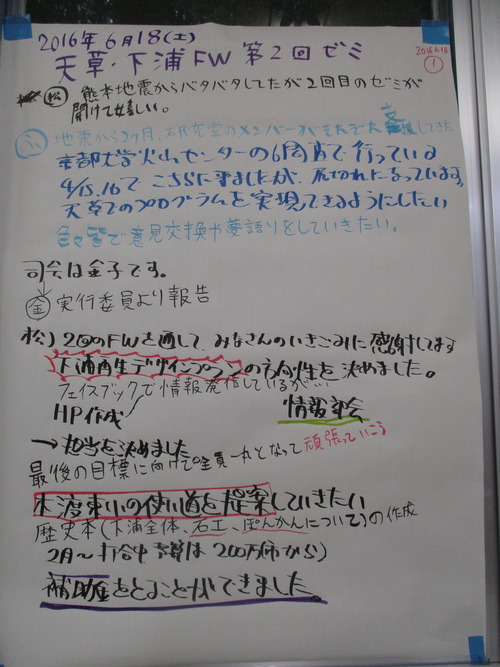 2016年6月18(土)
天草・下浦FW 第2回ゼミ
2016.6.18
1
松 熊本地震からバタバタしてたが2回目のゼミが
開けて嬉しい。
地震から2ヶ月、研究室のメンバーがそれぞれ支援してきた
京都大学火山センターの6周 で行っている
4/15,16で こちらに来ましたが、尻切れになっています。
天草でのプログラムを実現できるようにしたい
色々皆で意見交換や夢語りをしていきたい。
司会は金子です。
金 実行委員より報告
松) 2回のFWを通して、みなさんのいきごみに感謝してます
下浦再生デザインプランの方向性を決めました。
フェイスブックで情報発信しているが…
HP作成 情報部会
→担当を決めました
最後の目標に向けて全員一丸となって頑張っていこう
本渡東小の使い道を提案していきたい
歴史本(下浦全体、石工、ぽんかんについて)の作成
2月〜打合中 予算は200万(市から)
補助金をとることができました。